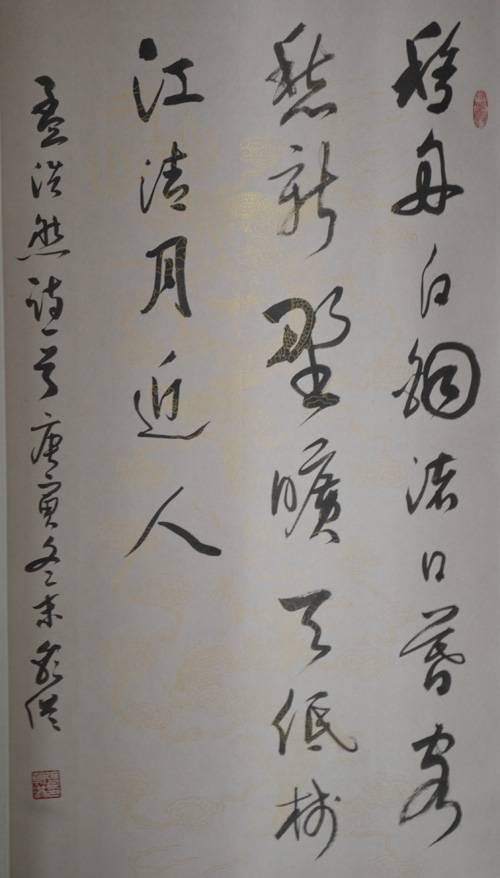 移舟泊烟渚日暮客
愁新野曠天低树
江清月近人
孟浩然詩一首庚寅冬末